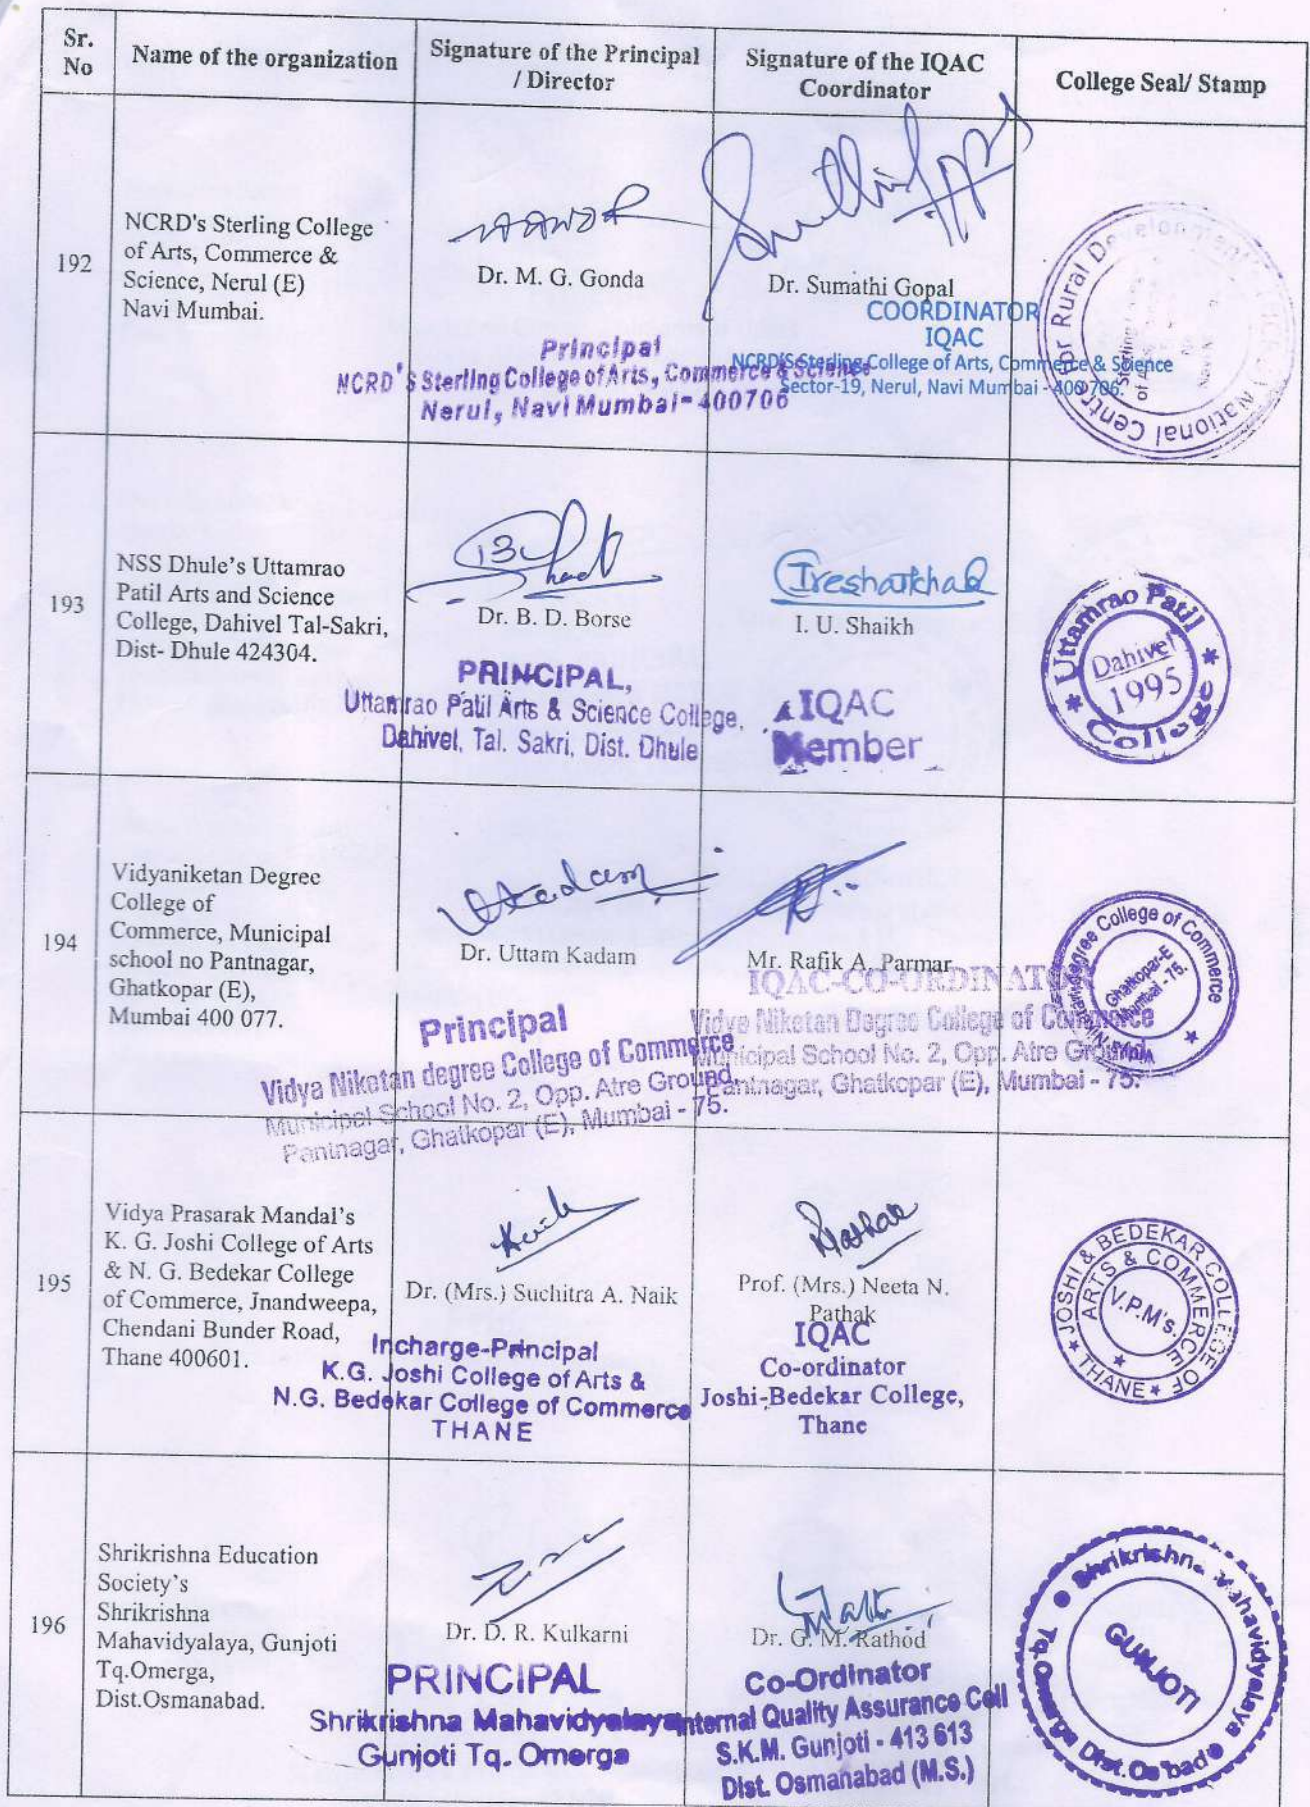 Sr. No
Name of the organization
Signature of the Principal / Director
Signature of the IQAC Coordinator
College Seal/ Stamp
192
NCRD's Sterling College
of Arts, Commerce &
Science, Nerul (E)
Navi Mumbai.
Dr. M. G. Gonda
Principal
NCRD'S Sterling College of Arts, Commerce & Science
Nerul, Navi Mumbai-400706
Dr. Sumathi Gopal
COORDINATOR
IQAC
NCRD'S Sterling College of Arts, Commerce & Science
Sector-19, Nerul, Navi Mumbai - 400706.
National Centre for Rural Development
193
NSS Dhule's Uttamrao
Patil Arts and Science
College, Dahivel Tal-Sakri,
Dist- Dhule 424304.
Dr. B. D. Borse
PRINCIPAL,
Uttamrao Patil Arts & Science College,
Dahivel, Tal. Sakri, Dist. Dhule
I. U. Shaikh
IQAC
Member
* Uttamrao Patil *
College
Dahivel
1995
194
Vidyaniketan Degree
College of
Commerce, Municipal
school no Pantnagar,
Ghatkopar (E),
Mumbai 400 077.
Dr. Uttam Kadam
Principal
Vidya Niketan degree College of Commerce
Municipal School No. 2, Opp. Atre Ground,
Pantnagar, Ghatkopar (E), Mumbai - 75.
Mr. Rafik A. Parmar
IQAC-CO-ORDINATOR
Vidya Niketan Degree College of Commerce
Municipal School No. 2, Opp. Atre Ground,
Pantnagar, Ghatkopar (E), Mumbai - 75.
degree College of Commerce
Ghatkopar-E
Mumbai - 75.
195
Vidya Prasarak Mandal's
K. G. Joshi College of Arts
& N. G. Bedekar College
of Commerce, Jnandweepa,
Chendani Bunder Road,
Thane 400601.
Dr. (Mrs.) Suchitra A. Naik
Incharge-Principal
K.G. Joshi College of Arts &
N.G. Bedekar College of Commerce
THANE
Prof. (Mrs.) Neeta N.
Pathak
IQAC
Co-ordinator
Joshi-Bedekar College,
Thane
JOSHI & BEDEKAR COLLEGE OF
ARTS & COMMERCE
V.P.M's.
* THANE *
196
Shrikrishna Education
Society's
Shrikrishna
Mahavidyalaya, Gunjoti
Tq.Omerga,
Dist.Osmanabad.
Dr. D. R. Kulkarni
PRINCIPAL
Shrikrishna Mahavidyalaya
Gunjoti Tq. Omerga
Dr. G. M. Rathod
Co-Ordinator
Internal Quality Assurance Cell
S.K.M. Gunjoti - 413 613
Dist. Osmanabad (M.S.)
Shrikrishna Mahavidyalaya
GUNJOTI
Tq. Omerga Dist. Os'bad